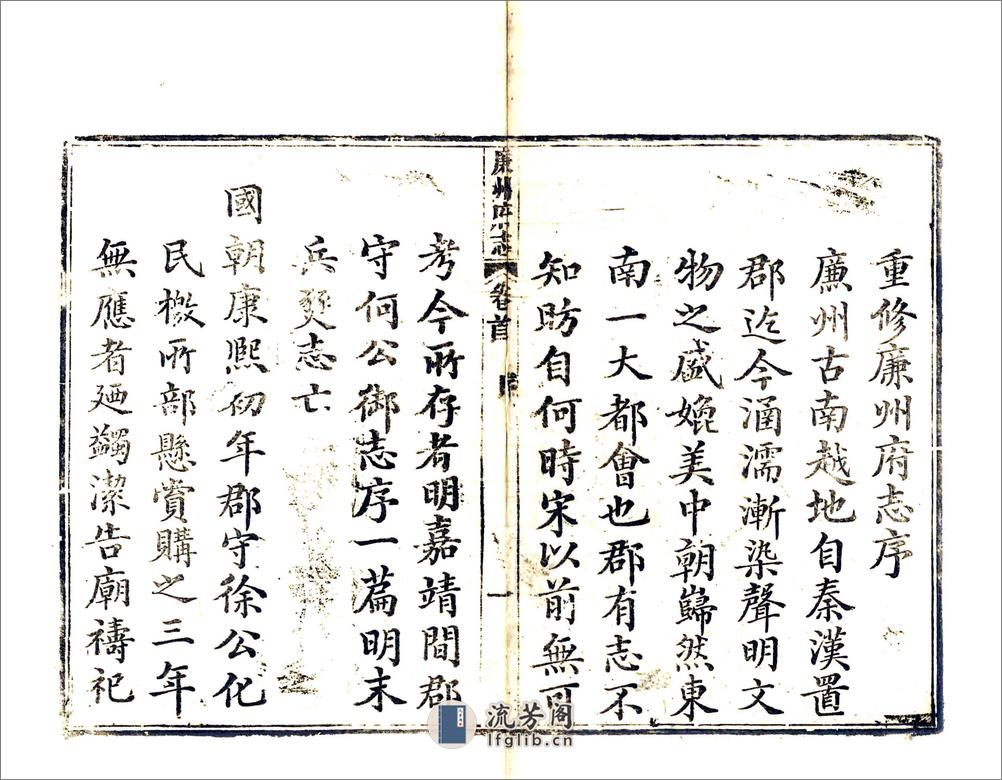 重修廉州府志序
廉州古南越地自秦漢置
郡迄今涵濡漸染聲明文
物之盛媲美中朝巋然東
南一大都會也郡有志不
知昉自何時宋以前無可
廉州府志 卷首 序 一
考今所存者明嘉靖間郡
守何公御志序一篇明末
兵燹志亡
國朝康熙初年郡守徐公化
民檄所部懸賞購之三年
無應者廼蠲潔告廟禱祀
流芳阁
lfglib.cn